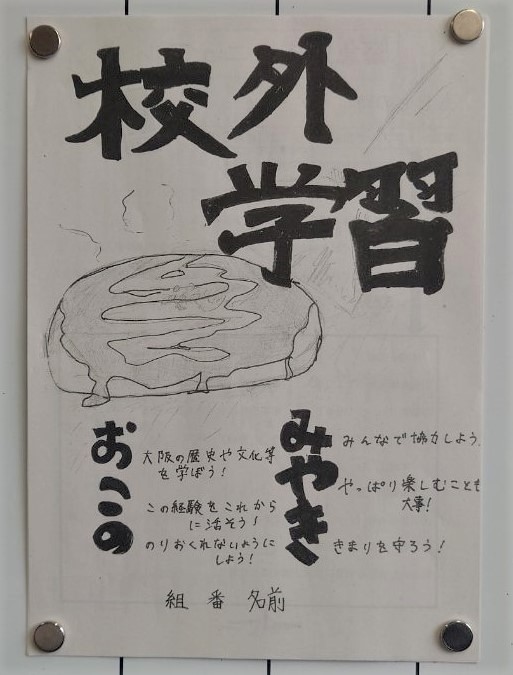 校外
学習
お 大阪の歴史や文化等
を学ぼう！
こ この経験をこれから
に活そう！
の のりおくれないように
しよう！
み みんなで協力しよう
や やっぱり楽しむことも
大事！
き きまりを守ろう！
組 番 名前